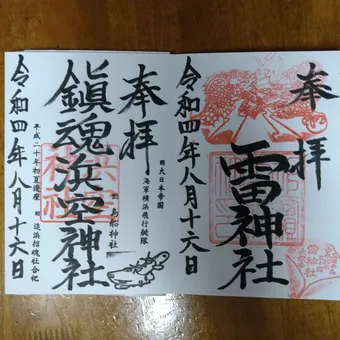 奉拝
雷神社
令和四年八月十六日
奉拝
旧大日本帝国
海軍横浜飛行艇隊
鳥船神社
鎮魂浜空神社
平成二十年初夏遷座
追浜招魂社合祀
令和四年八月十六日